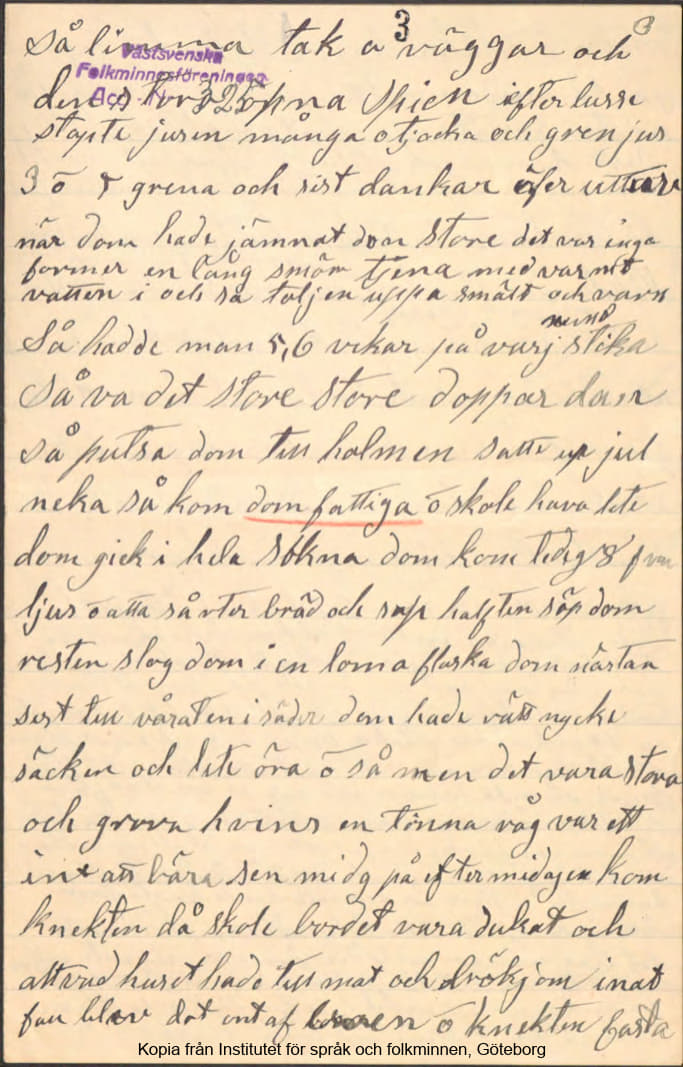 3 3
Så limma tak o väggar och
Västsvenska
Folkminnesföreningen
Acc. Nr 325
den öpna spien efter lusse
stöpte jusen många o tjocka och gren jus
3 ö 5 grena och sist dankar öfer
när dom hade jämnat dom store det var inga
former en lång smör tjena med varmt
vatten i och så toljen uppa smält och varm
Så hadde man 5,6 vekar på varj stika
Så va det store store doppar dan
så putsa dom till halmen satte up jul
neka så kom dom fattiga ö skole hava lite
dom gick i hela sökna dom kom tedeg 8 fram
ljus ö åtta så ter bräd och sup halften söp dom
resten slog dom i en loma flaska dom nästan
sist till våraten i säder dom hade vätt nycke
säcken och lite öra ö så men det vara stora
och grova hvins en tönna våg var ett
int att bära sen midg på eftermidagen kom
knekten då skole bordet vara dukat och
alt vad huset hade till mat och drökjom inat
fan blev dot ont af ö knekten fasta
Kopia från Institutet för språk och folkminnen, Göteborg